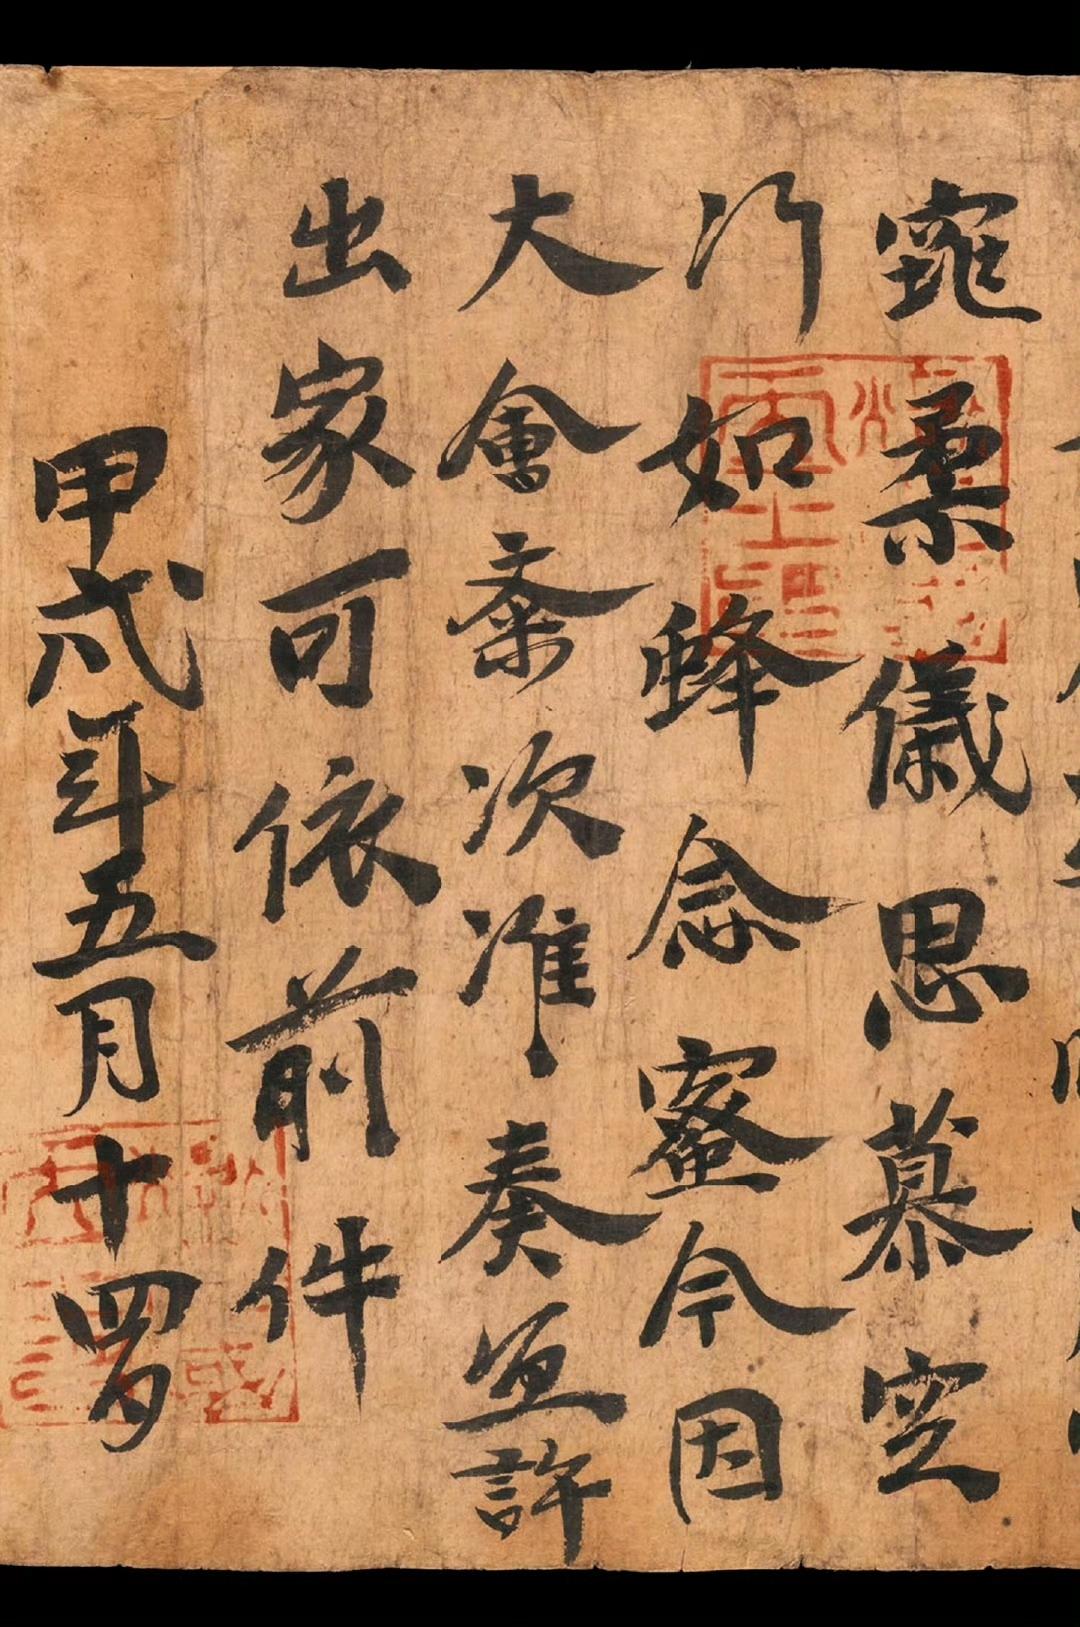 窕柔儀思慕空
行如蜂念蜜今因
大會齋次准奏宜許
出家可依前件
甲戌年五月十四日